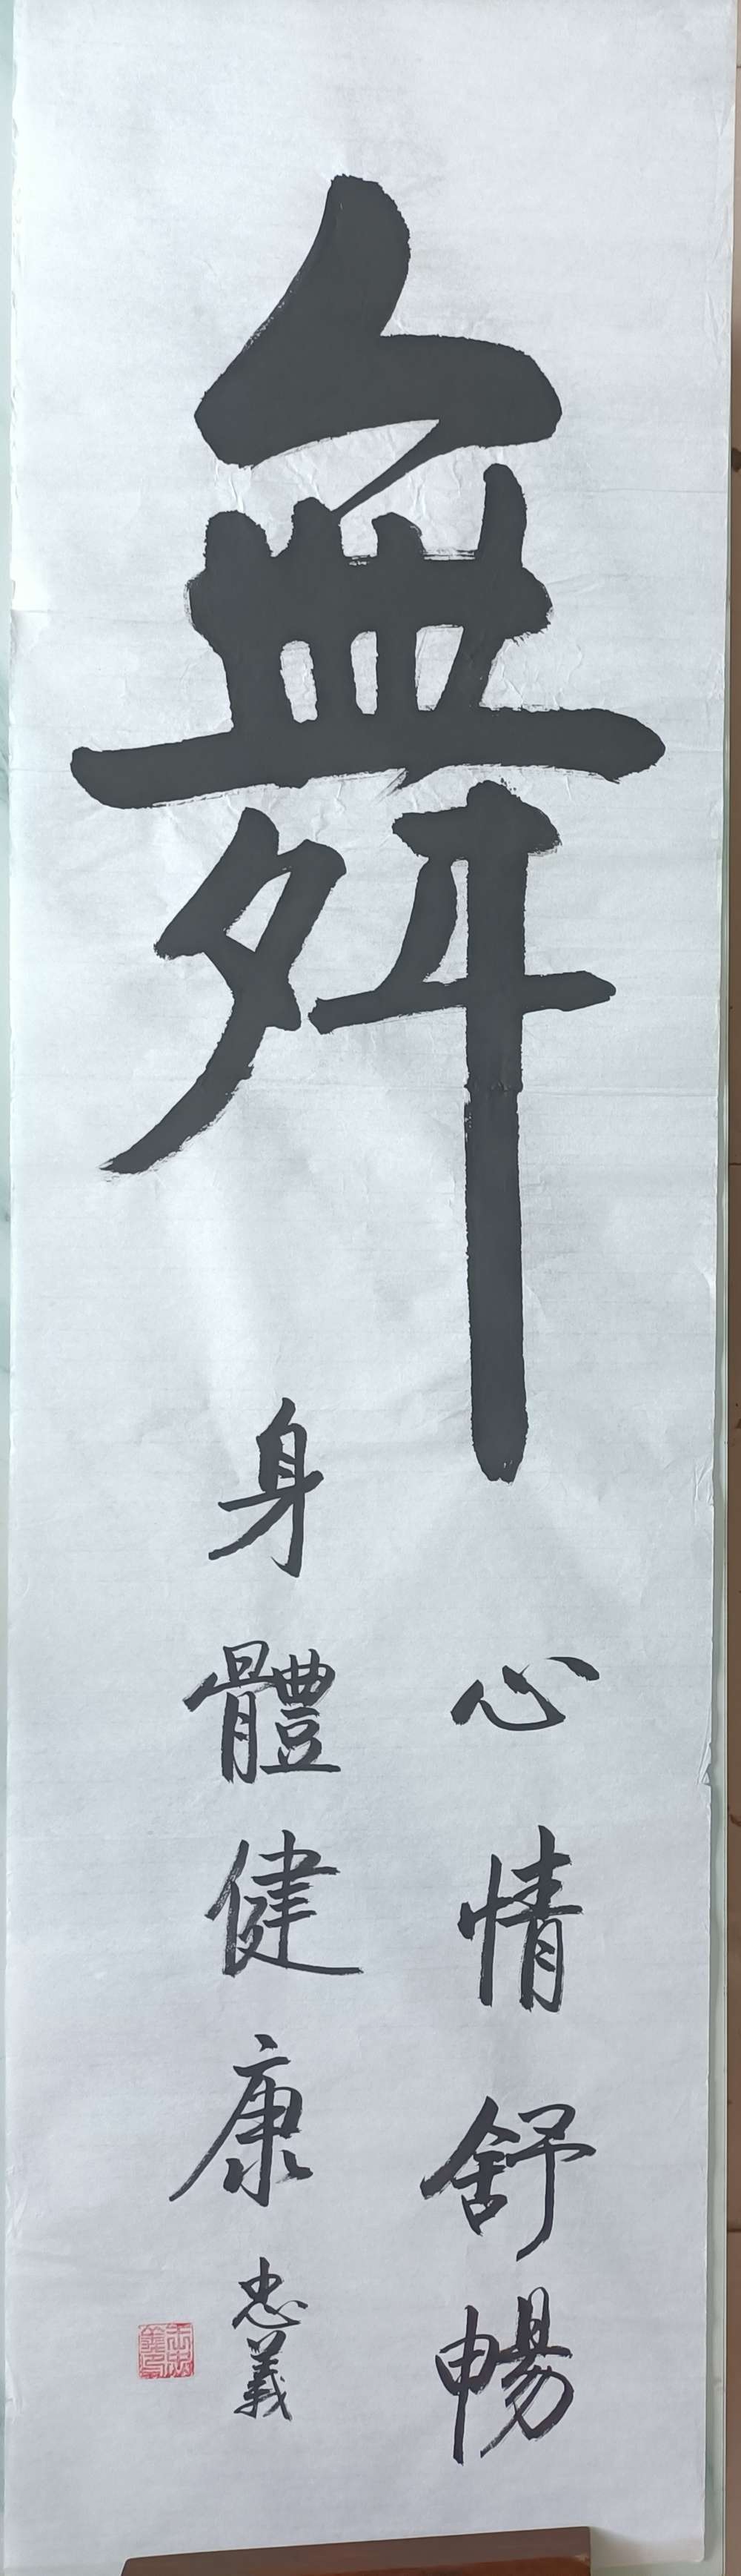 舞
心情舒暢
身體健康
忠義